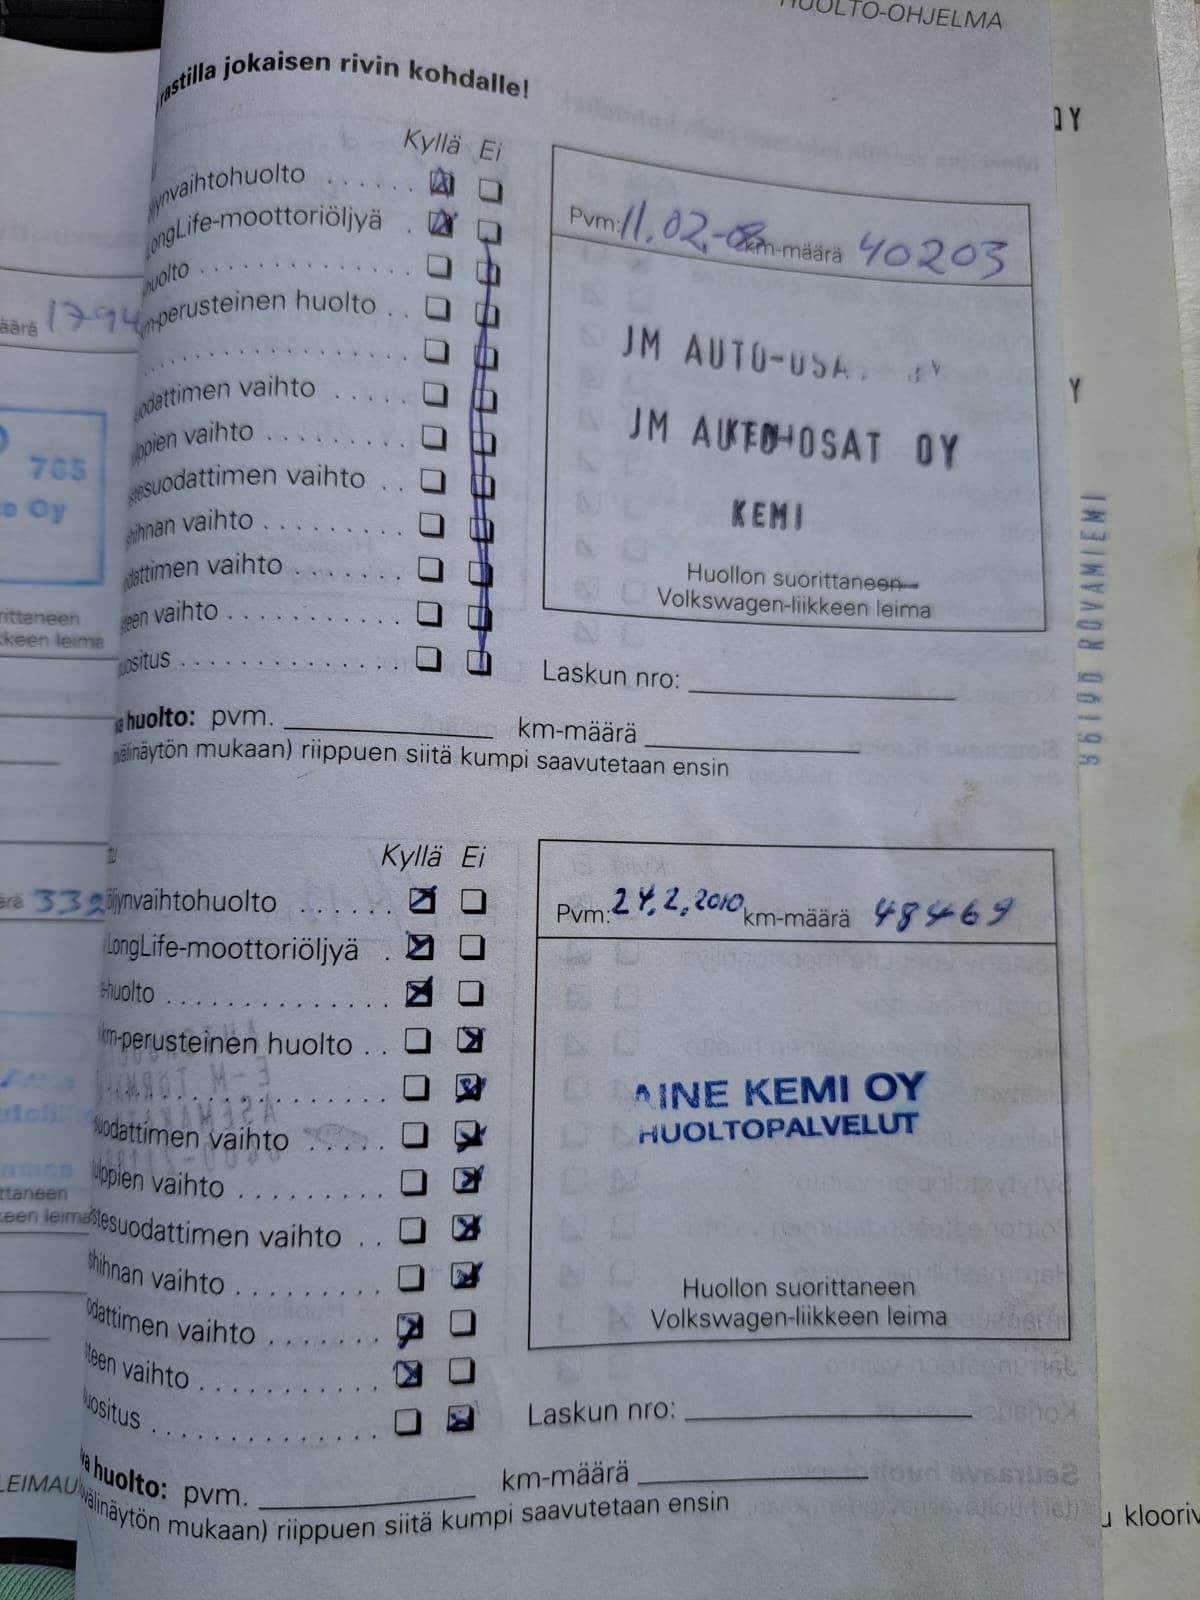 HUOLTO-OHJELMA
rastilla jokaisen rivin kohdalle!
Kyllä Ei
ljynvaihtohuolto
LongLife-moottoriöljyä
huolto
km-perusteinen huolto
odattimen vaihto
lppien vaihto
stesuodattimen vaihto
shihnan vaihto
odattimen vaihto
steen vaihto
suositus
Pvm: 11.02.-08 km-määrä 40203
JM AUTO-OSA
JM AUTO-OSAT OY
KEMI
Huollon suorittaneen
Volkswagen-liikkeen leima
Laskun nro:
va huolto: pvm. km-määrä
välinäytön mukaan) riippuen siitä kumpi saavutetaan ensin
Kyllä Ei
öljynvaihtohuolto
LongLife-moottoriöljyä
e-huolto
km-perusteinen huolto
suodattimen vaihto
ulppien vaihto
stesuodattimen vaihto
shihnan vaihto
odattimen vaihto
steen vaihto
suositus
Pvm: 24.2.2010 km-määrä 48469
AINE KEMI OY
HUOLTOPALVELUT
Huollon suorittaneen
Volkswagen-liikkeen leima
Laskun nro:
va huolto: pvm. km-määrä
välinäytön mukaan) riippuen siitä kumpi saavutetaan ensin
äärä 1794
765
Oy
rittaneen
kkeen leima
ärä 332
ttaneen
keen leima
LEIMAU
OY
Y
96190 ROVANIEMI
u klooriv